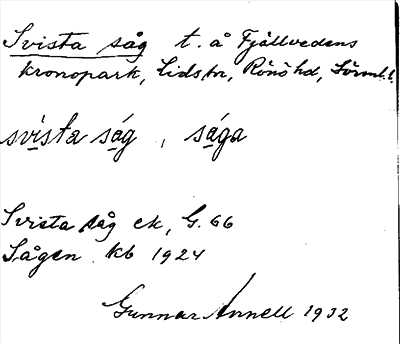 Svista såg t. å Fjällvedens
kronopark, Lidstr, Rönö hd, Sörml.
svista såg, såga
Svista såg ek, G. 66
Sågen kb 1924
Gunnar Annell 1932